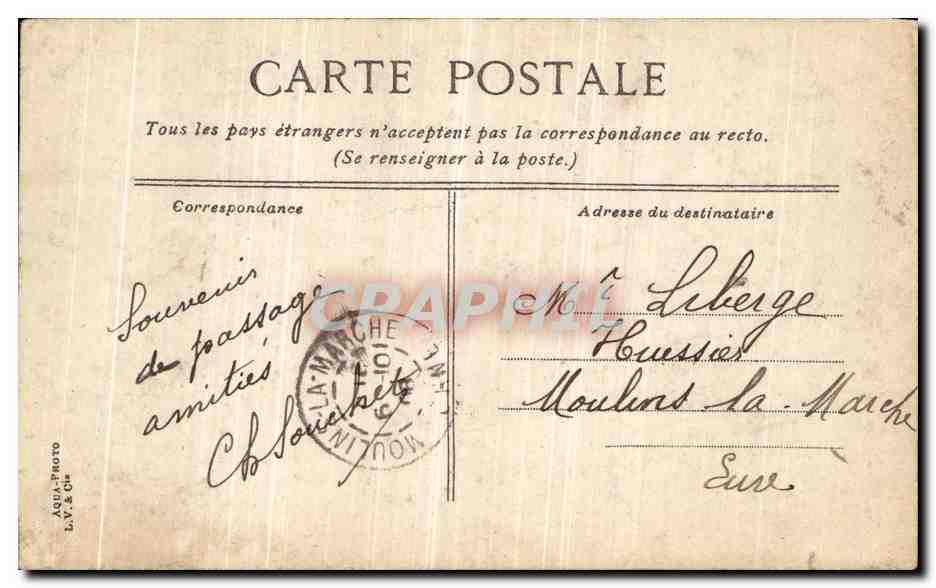 CARTE POSTALE
Tous les pays étrangers n'acceptent pas la correspondance au recto.
(Se renseigner à la poste.)
Correspondance
Adresse du destinataire
Souvenir
de passage
amitiés
Ch Souchet
Mr Liberge
Huissier
Moulins la Marche
Eure
MOULIN-LA-MARCHE
CRAPHIL
AQUA-PHOTO
L.V. & Cie